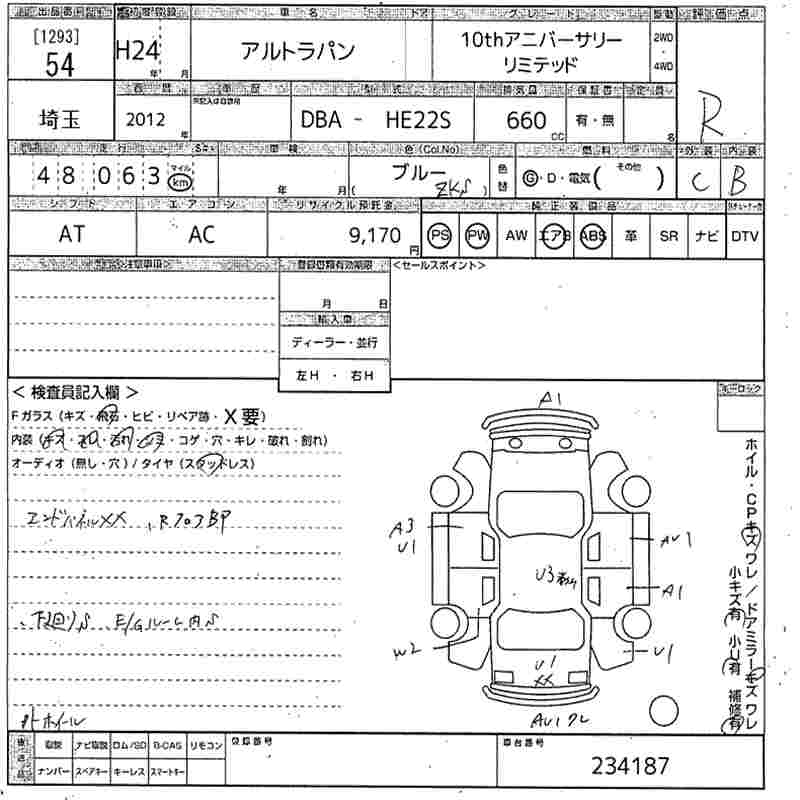 出品番号 初度登録 車名 ドア グレード 駆動 評価点
[1293]
54
H24 年 月
アルトラパン
10thアニバーサリー
リミテッド
2WD
4WD
R
車歴 型式 排気量 保証書 定員
埼玉
2012 年
DBA - HE22S
660 cc
有・無
名
走行 車検 色(Col.No) 燃料 外装 内装
48063 マイル km
年 月
ブルー
( ZKS )
色替
G・D・電気( その他 )
C B
シフト エアコン リサイクル預託金 純正装備品
AT AC 9,170 円
PS PW AW エアB ABS 革 SR ナビ DTV
注意事項 登録書類有効期限 <セールスポイント>
月 日
輸入車
ディーラー・並行
左H ・ 右H
< 検査員記入欄 >
キーロック
Fガラス (キズ・飛石・ヒビ・リペア跡・X要)
内装 (キズ・ ・汚れ・ ・コゲ・穴・キレ・破れ・割れ)
オーディオ (無し・穴) / タイヤ (スタッドレス)
エンドパネルXX 、Rフロア
下回りS E/Gルーム内S
ホイール
A1
A3
U1
AU1
U3
A1
W2
U1
U1
XX
AU1ワレ
ホイル・CPキズワレ/ドアミラーキズワレ
小キズ有 小U有 補修有
取説 ナビ取説 ロム/SD B-CAS リモコン
ナンバー スペアキー キーレス スマートキー
登録番号
車台番号
234187